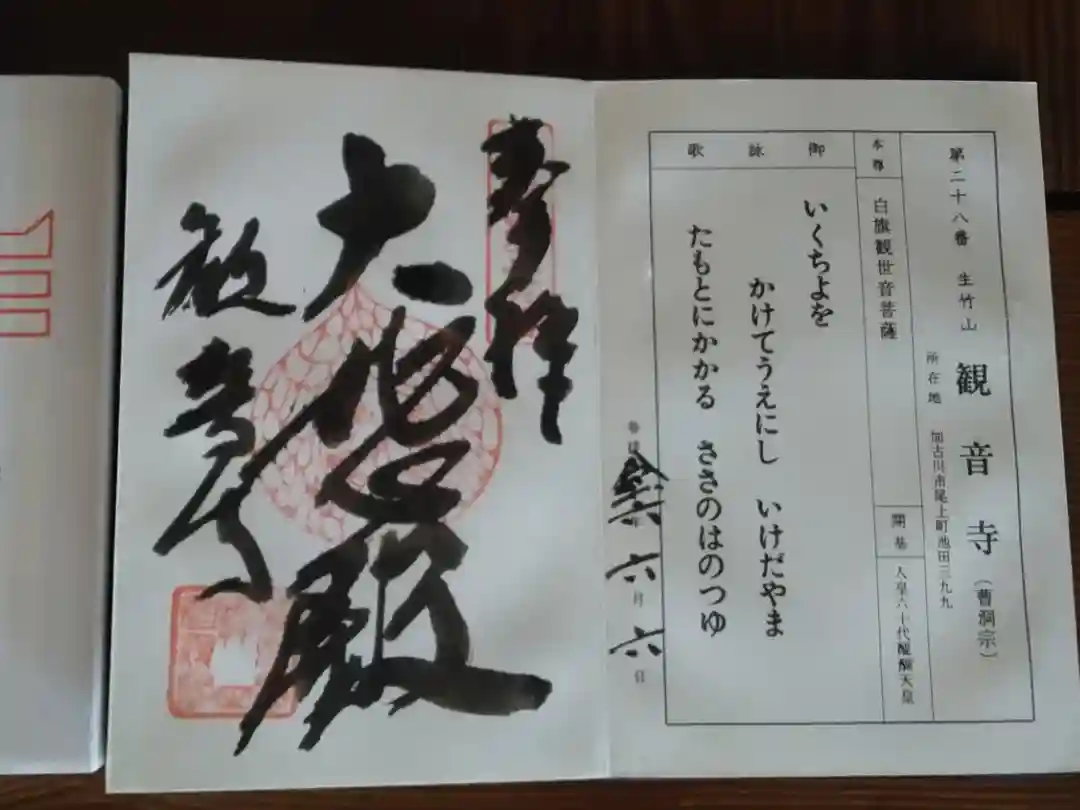 第二十八番 生竹山 観音寺(曹洞宗)
所在地 加古川市尾上町池田三九九
本尊 白旗観世音菩薩
開基 人皇六十代醍醐天皇
御詠歌
いくちよを
かけてうえにし いけだやま
たもとにかかる ささのはのつゆ
参拝
六月六日
奉拝
大悲殿
観音寺